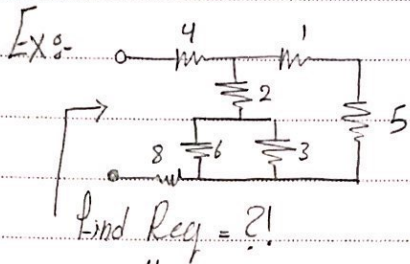 Ex:-
4 1
2
5
8 6 3
find Req = ?!